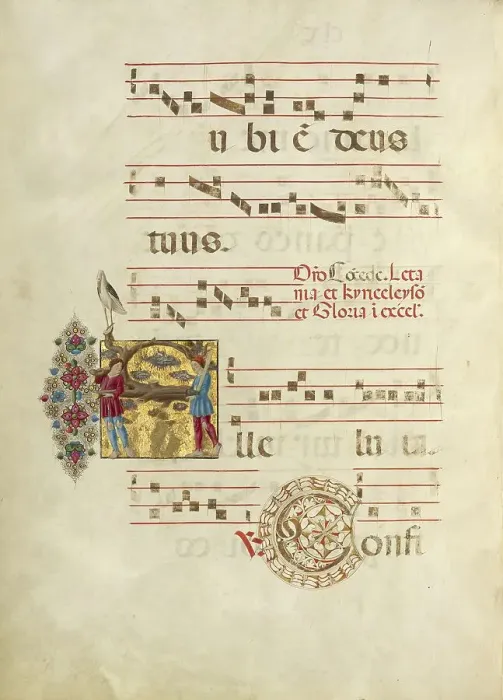 u bi ē deus
tuus.
Oro Cōcede. Leta
nia et kyrieeleysō
et Gloria i excel.
Alle lu ia.
℣. Confi